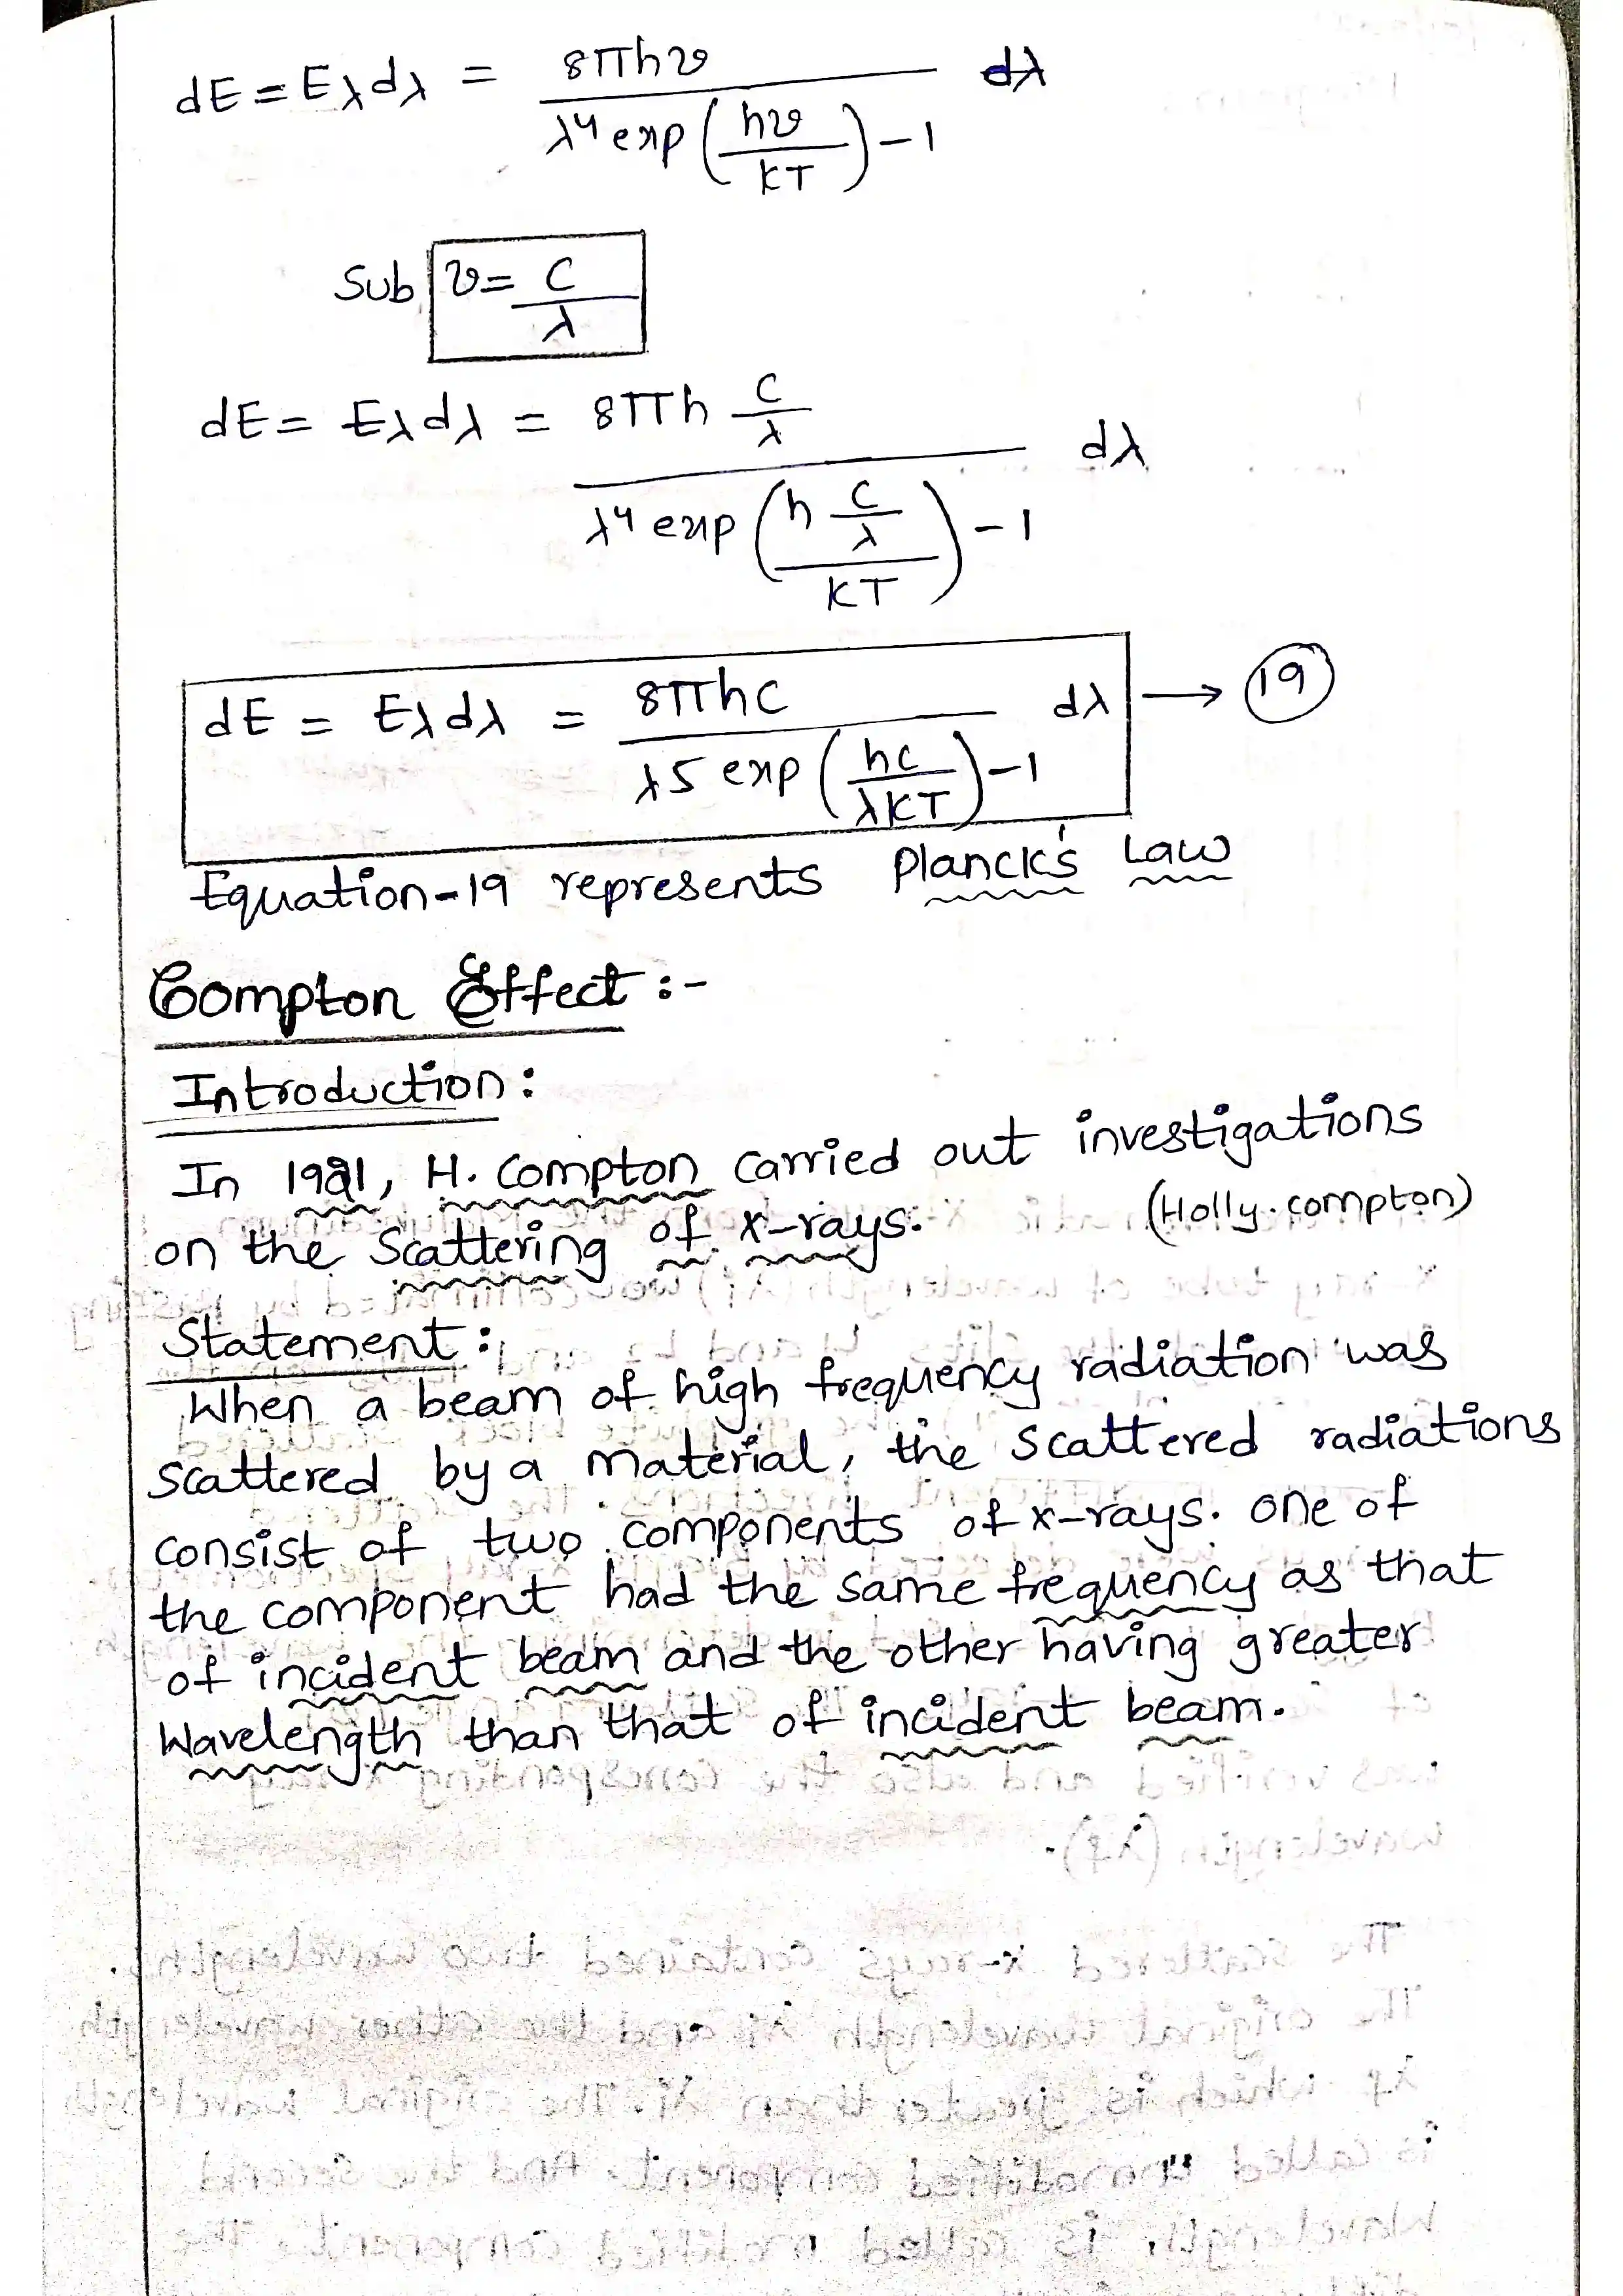 dE = Eλdλ = 8πhν / λ⁴ exp(hν/KT) - 1 dλ
Sub ν = C/λ
dE = Eλdλ = 8πh C/λ / λ⁴ exp(h C/λ / KT) - 1 dλ
dE = Eλdλ = 8πhC / λ5 exp(hC/λKT) - 1 dλ → 19
Equation-19 represents Planck's Law
Compton Effect :-
Introduction :
In 1921, H. Compton carried out investigations
(Holly. compton)
on the Scattering of x-rays.
Statement :
When a beam of high frequency radiation was
scattered by a material, the scattered radiations
consist of two components of x-rays. one of
the component had the same frequency as that
of incident beam and the other having greater
Wavelength than that of incident beam.